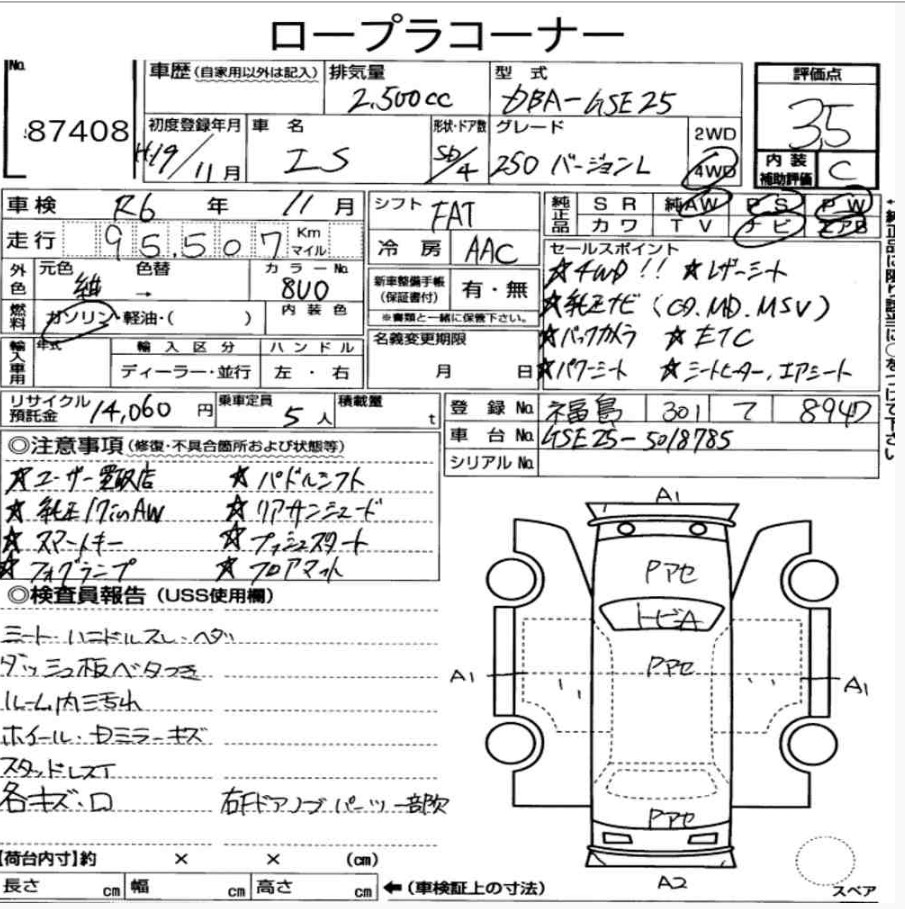 ロープラコーナー
No. 87408
車歴(自家用以外は記入) 排気量 2,500cc 型式 DBA-GSE25 評価点 3.5
初度登録年月 H19/11月 車名 IS 形状・ドア数 SD/4 グレード 250 バージョンL 2WD 4WD 内装補助評価 C
車検 R6年 11月 シフト FAT 純正品 SR 純AW PS PW
カワ TV ナビ エアB
走行 95,507 Km マイル 冷房 AAC
外色 元色 紺 色替 → カラーNo. 8U0
新車整備手帳(保証書付) 有・無
※書類と一緒に保管下さい。
燃料 ガソリン・軽油・( ) 内装色
輸入車用 年式 輸入区分 ハンドル
ディーラー・並行 左・右
名義変更期限 月 日
セールスポイント
☆4WD!! ☆レザーシート
☆純正ナビ(CD.MD.MSV)
☆バックカメラ ☆ETC
☆パワーシート ☆シートヒーター,エアシート
リサイクル預託金 14,060円 乗車定員 5人 積載量 t
登録No. 福島 301 て 8947
車台No. GSE25-5018785
シリアルNo.
◎注意事項(修復・不具合箇所および状態等)
☆ユーザー買取店 ☆パドルシフト
☆純正17inAW ☆リアサンシェード
☆スマートキー ☆プッシュスタート
☆フォグランプ ☆フロアマット
◎検査員報告(USS使用欄)
シート ハンドルスレ・ヘタリ
ダッシュ板ベタつき
ルーム内三汚れ
ホイール・ドミラーキズ
スタッドレスT
各キズ・凹 右Fドアノブパーツ一部欠
A1
Pアセ
トビA
Pアセ
A1 A1
Pアセ
A2
スペア
【荷台内寸】約 × × (cm)
長さ cm 幅 cm 高さ cm ←(車検証上の寸法)